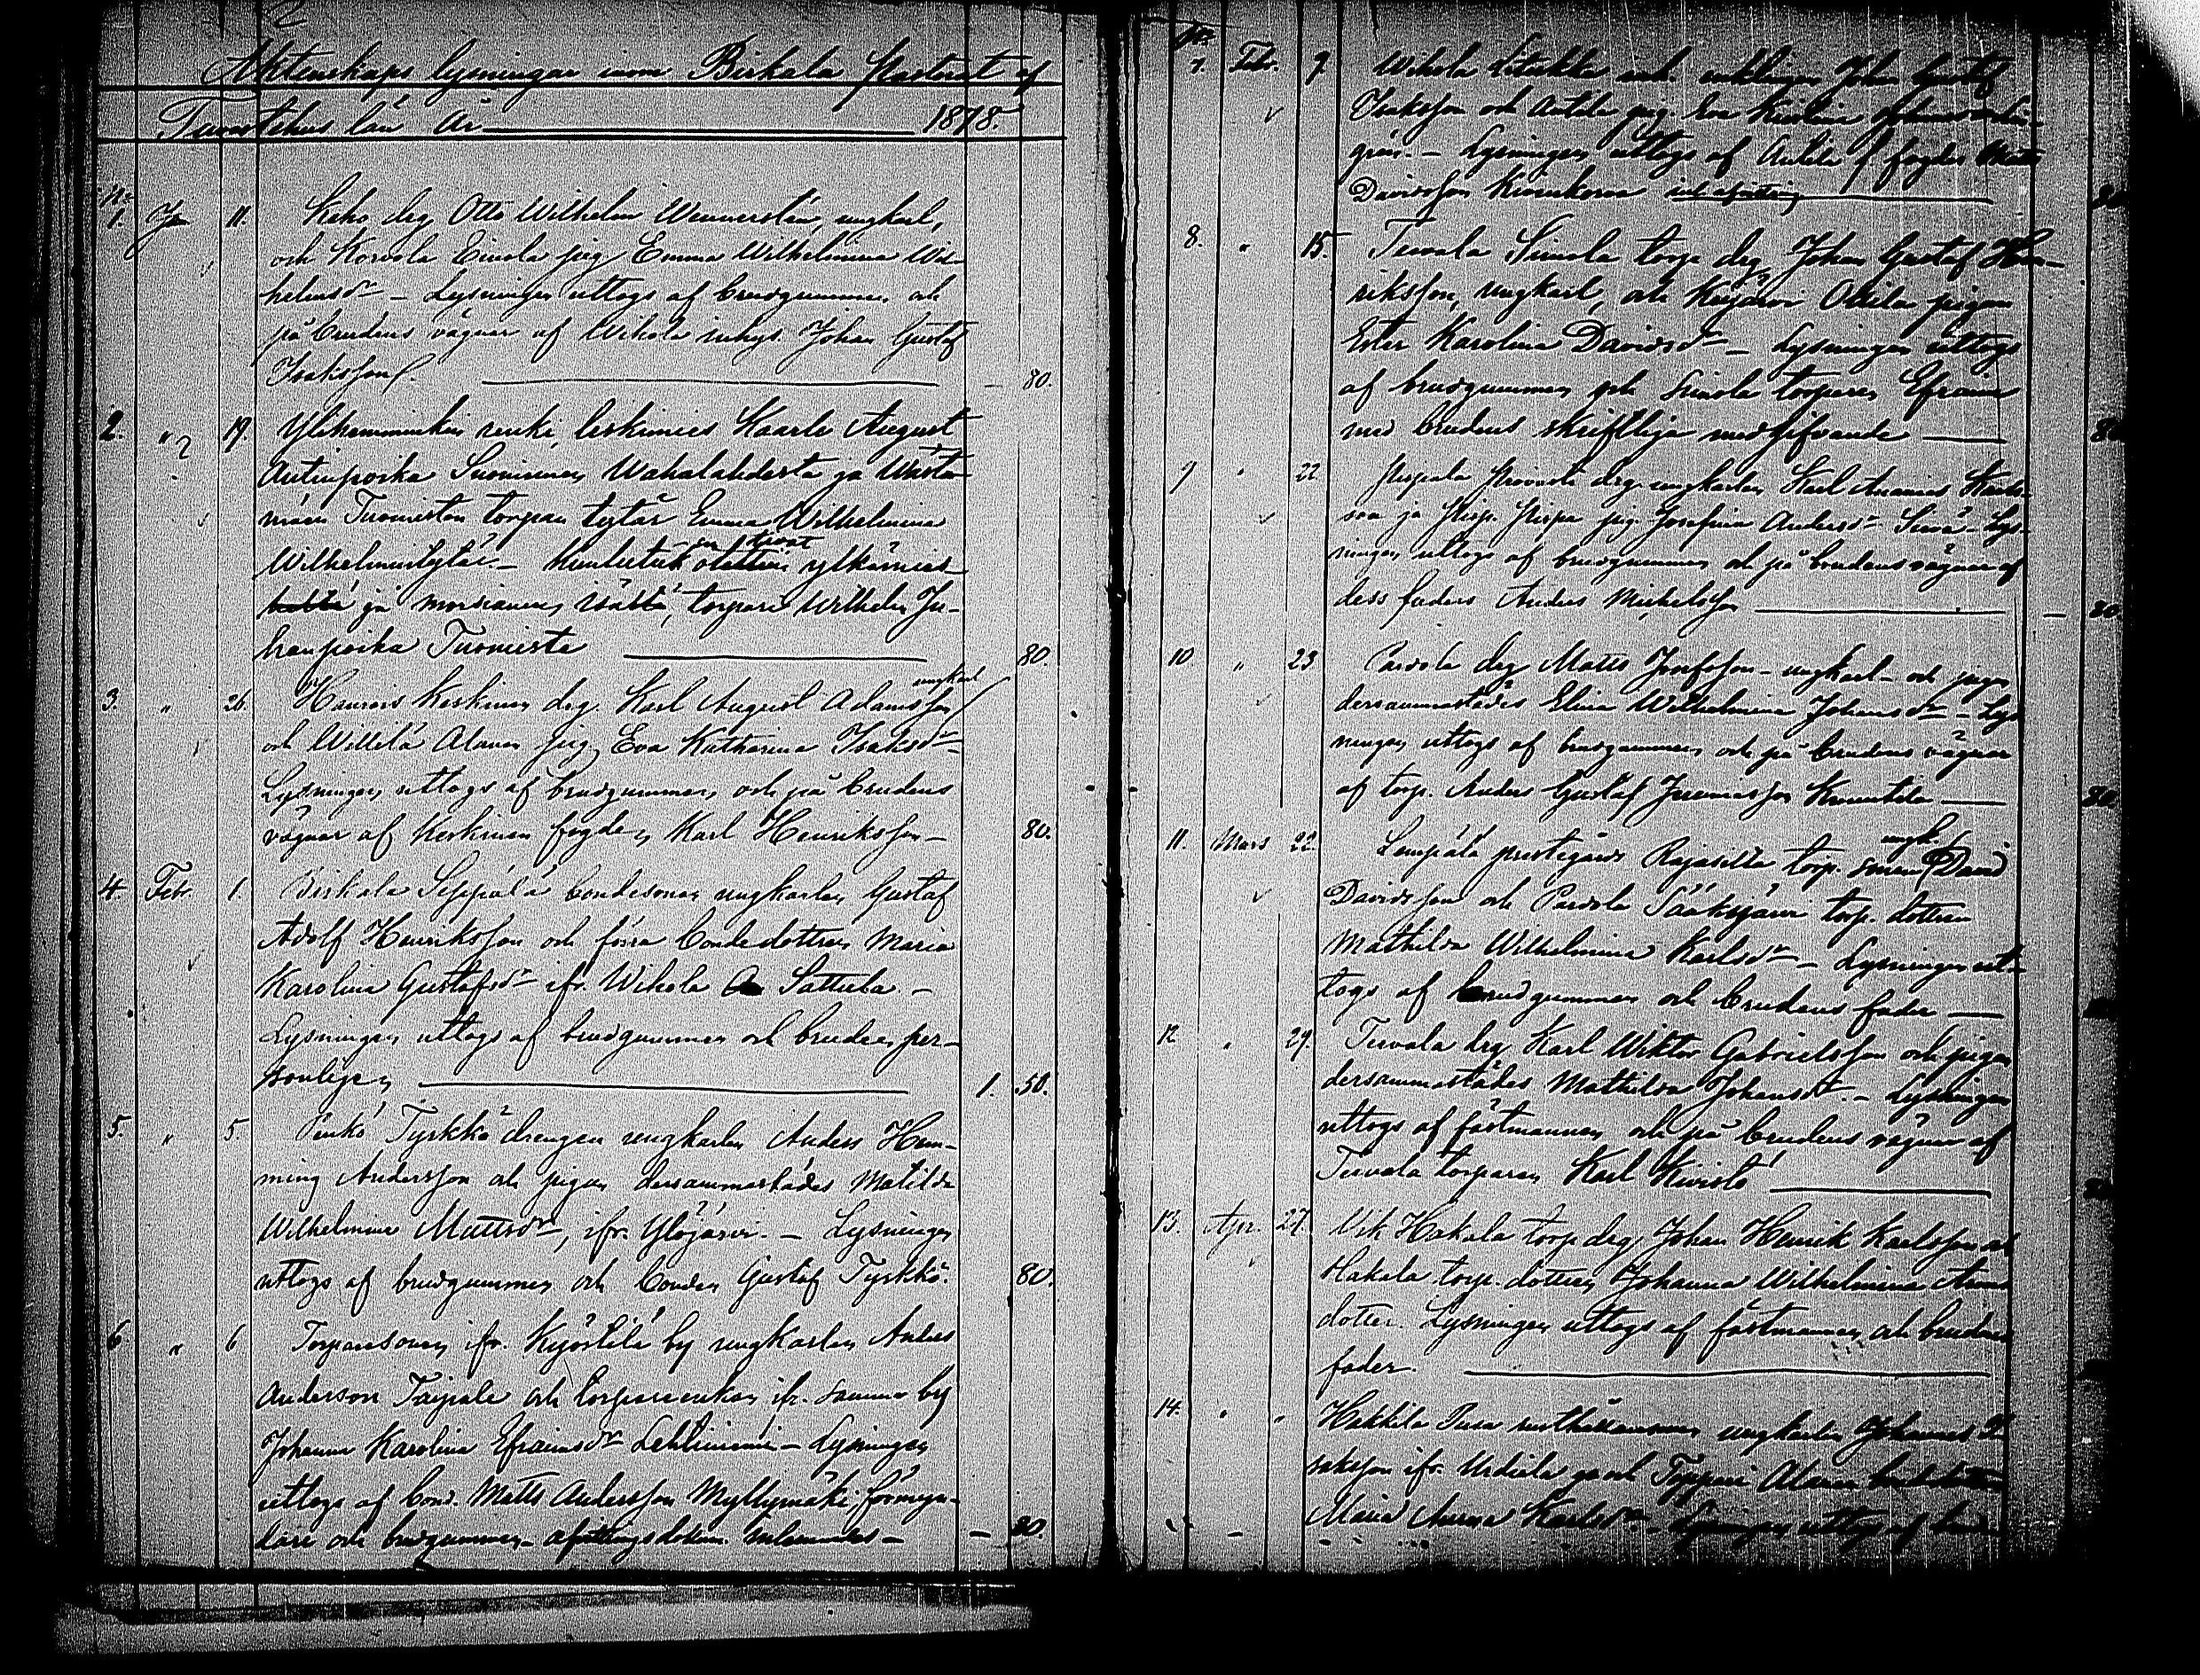 Äktenskaps lysningar inom Birkala Pastorat af
Tavastehus län År 1878.
No
1. Jan 11. Keho drg Otto Wilhelm Wennerström, ungkarl,
och Korvola Einola pig. Emma Wilhelmina Wil-
helmsdr — Lysningen uttogs af brudgummen och
på brudens vägnar af Wihola inhys. Johan Gustaf
Isaksson. — 80.
2. " 19. Ylikamminkin renki, leskimies Kaarle August
Antinpoika Suominen Wahalahdesta ja
Tuomiston torpan tytär Emma Wilhelmina
Wilhelmintytär — Kuulutuksen ottivat ylkämies
ja morsiamen isä, torpari Wilhelm Ju-
hanpoika Tuomisto 80.
3. " 26. Keskinen drg. Karl August Adamsson ungkarl
och Willilä Alanen pig. Eva Katharina Isaksdr —
Lysningen uttogs af brudgummen och på brudens
vägnar af Keskinen fogden Karl Henriksson — 80.
4. Febr. 1. Birkala Seppälä bondesonen ungkarlen Gustaf
Adolf Henriksson och förra bondedottren Maria
Karolina Gustafsdr ifr. Wihola Sattula —
Lysningen uttogs af brudgummen och bruden per-
sonligen 1. 50.
5. " 5. Penkö Tyrkkö drengen ungkarlen Anders Hen-
ning Andersson och pigan dersammastädes Matilda
Wilhelmina Mattsdr, ifr. Ylöjärvi. — Lysningen
uttogs af brudgummen och bonden Gustaf Tyrkkö. 80.
6 " 6 Torparesonen ifr. Kyöstilä by ungkarlen Anders
Andersson Taipale och torpareenkan ifr. samma by
Johanna Karolina Efraimsdr Lehtiniemi — Lysningen
uttogs af bond. Matts Andersson Myllymäki förmyn-
dare och brudgummen — — 80.
No
7. Febr. 9. Wihola enklingen Johan Gustaf
Isaksson och Antila pig. Eva
— Lysningen uttogs af Antila fogden Matts
Davidsson 80
8. " 15. Teivala Simola torp. drg Johan Gustaf Hen-
riksson, ungkarl, och Kuljärvi Ollila pigan
Ester Karolina Davidsdr — Lysningen uttogs
af brudgummen och Simola torparen Efraim
med brudens skriftliga medgifvande — 80
9 " 22. Pispala Provasti drg ungkarlen Karl Ananias Karls-
son ja Pisp. Pispa pig. Josefina Andersdr — Lys-
ningen uttogs af brudgummen och på brudens vägnar af
dess faders Anders Michelsson — 80
10. " 23 Partola drg Matts Josefsson — ungkarl — och pigan
dersammastädes Elina Wilhelmina Johansdr — Lys-
ningen uttogs af brudgummen och på brudens vägnar
af torp. Anders Gustaf Jeremiasson Knuutila — 80.
11. Mars 22. Lempäälä prestegårds Rajasilta torp. sonen ungk. David
Davidsson och Partola Sääksjärvi torp. dottren
Mathilda Wilhelmina Karlsdr — Lysningen ut-
togs af brudgummen och brudens fader —
12 " 29. Teivala drg Karl Wiktor Gabrielsson och pigan
dersammastädes Mathilda Johansdr. — Lysningen
uttogs af fästmannen och på brudens vägnar af
Teivala torparen Karl Kivistö
13. Apr. 27. Hakala torp drg Johan Henrik Karlsson och
Hakala torp. dottren Johanna Wilhelmina
dotter. Lysningen uttogs af fästmannen och brudens
fader.
14. " " Hakkila rusthållaresonen ungkarlen Johannes I-
saksson ifr. och Typpari Alanen
Maria Anna Karlsdr — Lysningen uttogs af